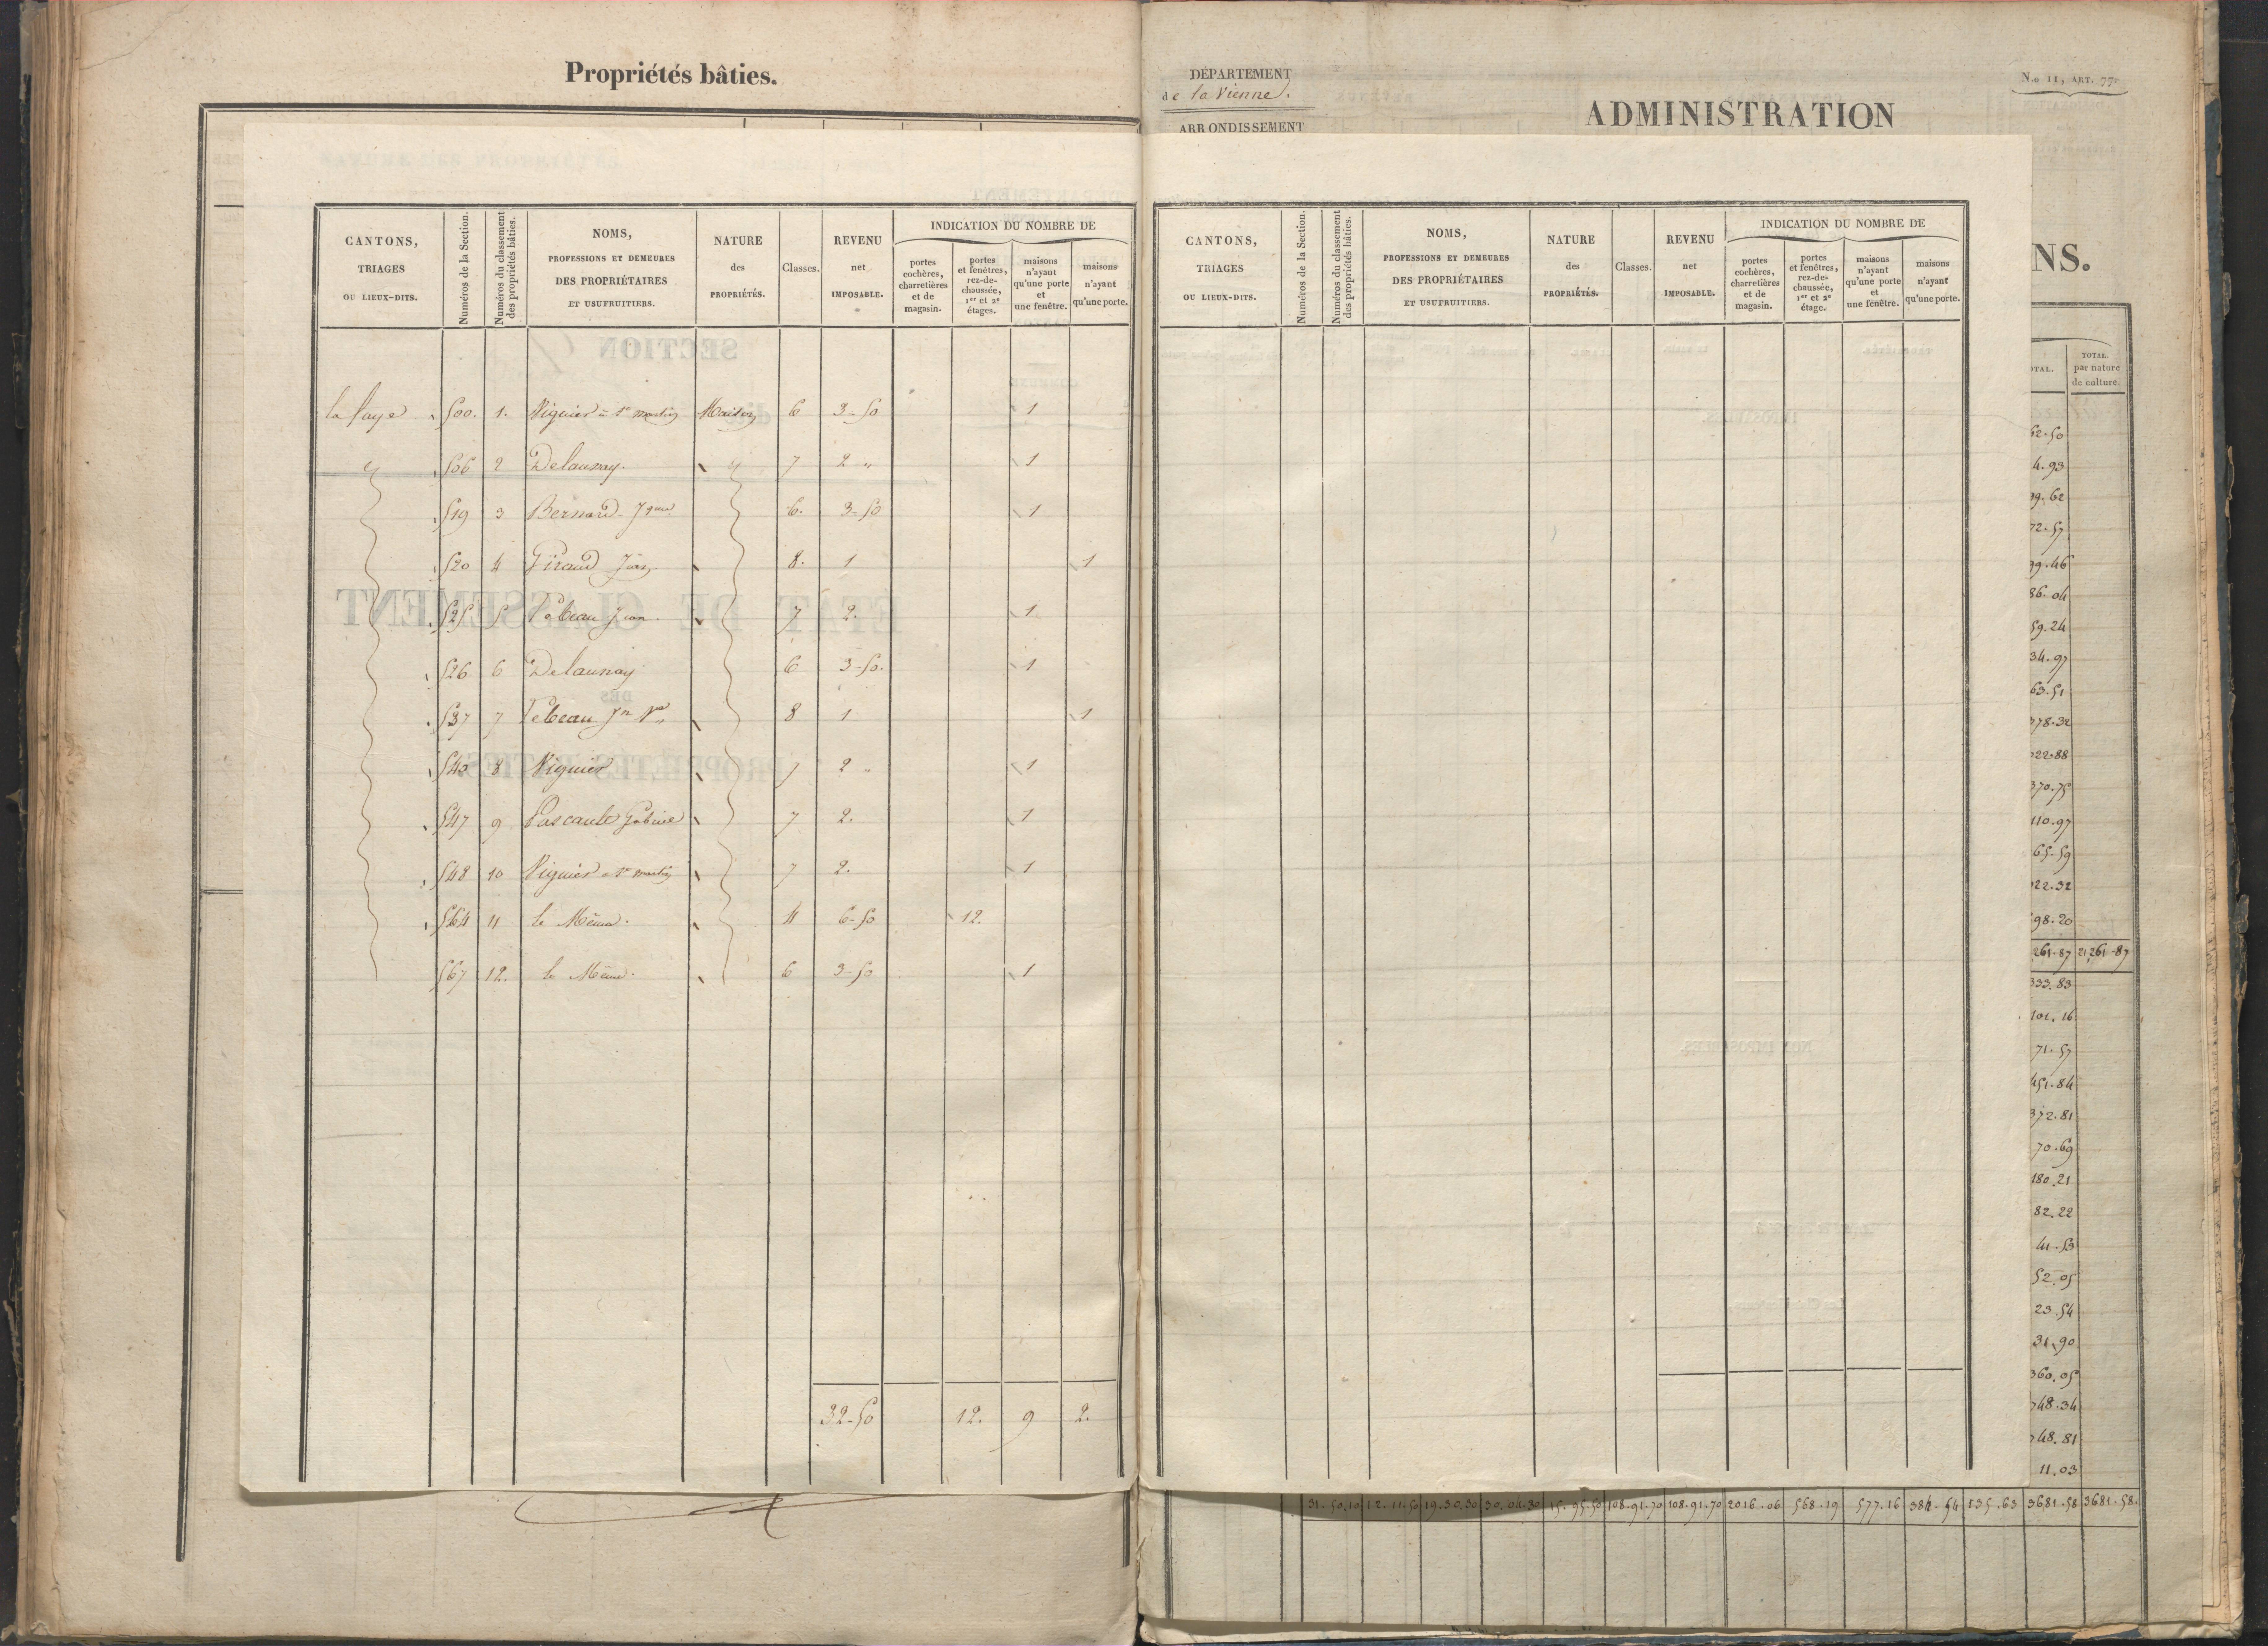 Propriétés bâties.
CANTONS, TRIAGES OU LIEUX-DITS. | Numéros de la Section. | Numéros du classement des propriétés bâties. | NOMS, PROFESSIONS ET DEMEURES DES PROPRIÉTAIRES ET USUFRUITIERS. | NATURE des PROPRIÉTÉS. | Classes. | REVENU net IMPOSABLE. | INDICATION DU NOMBRE DE
portes cochères, charretières et de magasin. | portes et fenêtres, rez-de-chaussée, 1er et 2e étages. | maisons n'ayant qu'une porte et une fenêtre. | maisons n'ayant qu'une porte.
la faye 500. 1. Viguier à St martin Maison 6 3-50 1
506 2 Delaunay. 7 2 " 1
519 3 Bernard 6. 3-50 1
520 4 Giraud Jean 8. 1 1
525 5 Tebeau Jean 7 2. 1
526 6 Delaunay 6 3-50. 1
537 7 Tebeau Jn 8 1 1
543 8 Viguier 7 2 " 1
547 9 Pascault Gabriel 7 2. 1
548 10 Viguier à St martin 7 2. 1
564 11 le Même. 4 6-50 12.
567 12. le Même. 6 3-50 1
32-50 12. 9 2.
DÉPARTEMENT
de la Vienne.
ARRONDISSEMENT
N.o 11, ART.
ADMINISTRATION
NS.
CANTONS, TRIAGES OU LIEUX-DITS. | Numéros de la Section. | Numéros du classement des propriétés bâties. | NOMS, PROFESSIONS ET DEMEURES DES PROPRIÉTAIRES ET USUFRUITIERS. | NATURE des PROPRIÉTÉS. | Classes. | REVENU net IMPOSABLE. | INDICATION DU NOMBRE DE
portes cochères, charretières et de magasin. | portes et fenêtres, rez-de-chaussée, 1er et 2e étage. | maisons n'ayant qu'une porte et une fenêtre. | maisons n'ayant qu'une porte.
OTAL. | TOTAL. par nature de culture.
62.50
4.93
99.62
72.57
99.46
86.04
59.24
34.97
63.51
378.32
22.88
370.75
110.97
65.59
22.32
98.20
261.87 21,261.87
333.83
101.16
71.57
451.84
372.81
70.69
180.21
82.22
41.53
52.05
23.54
31.90
360.05
748.34
748.81
11.03
31.50.10 12.11.50 19.30.30 30.04.30 15.95.50 108.91.70 108.91.70 2016.06 568.19 577.16 384.54 135.63 3681.58 3681.58.